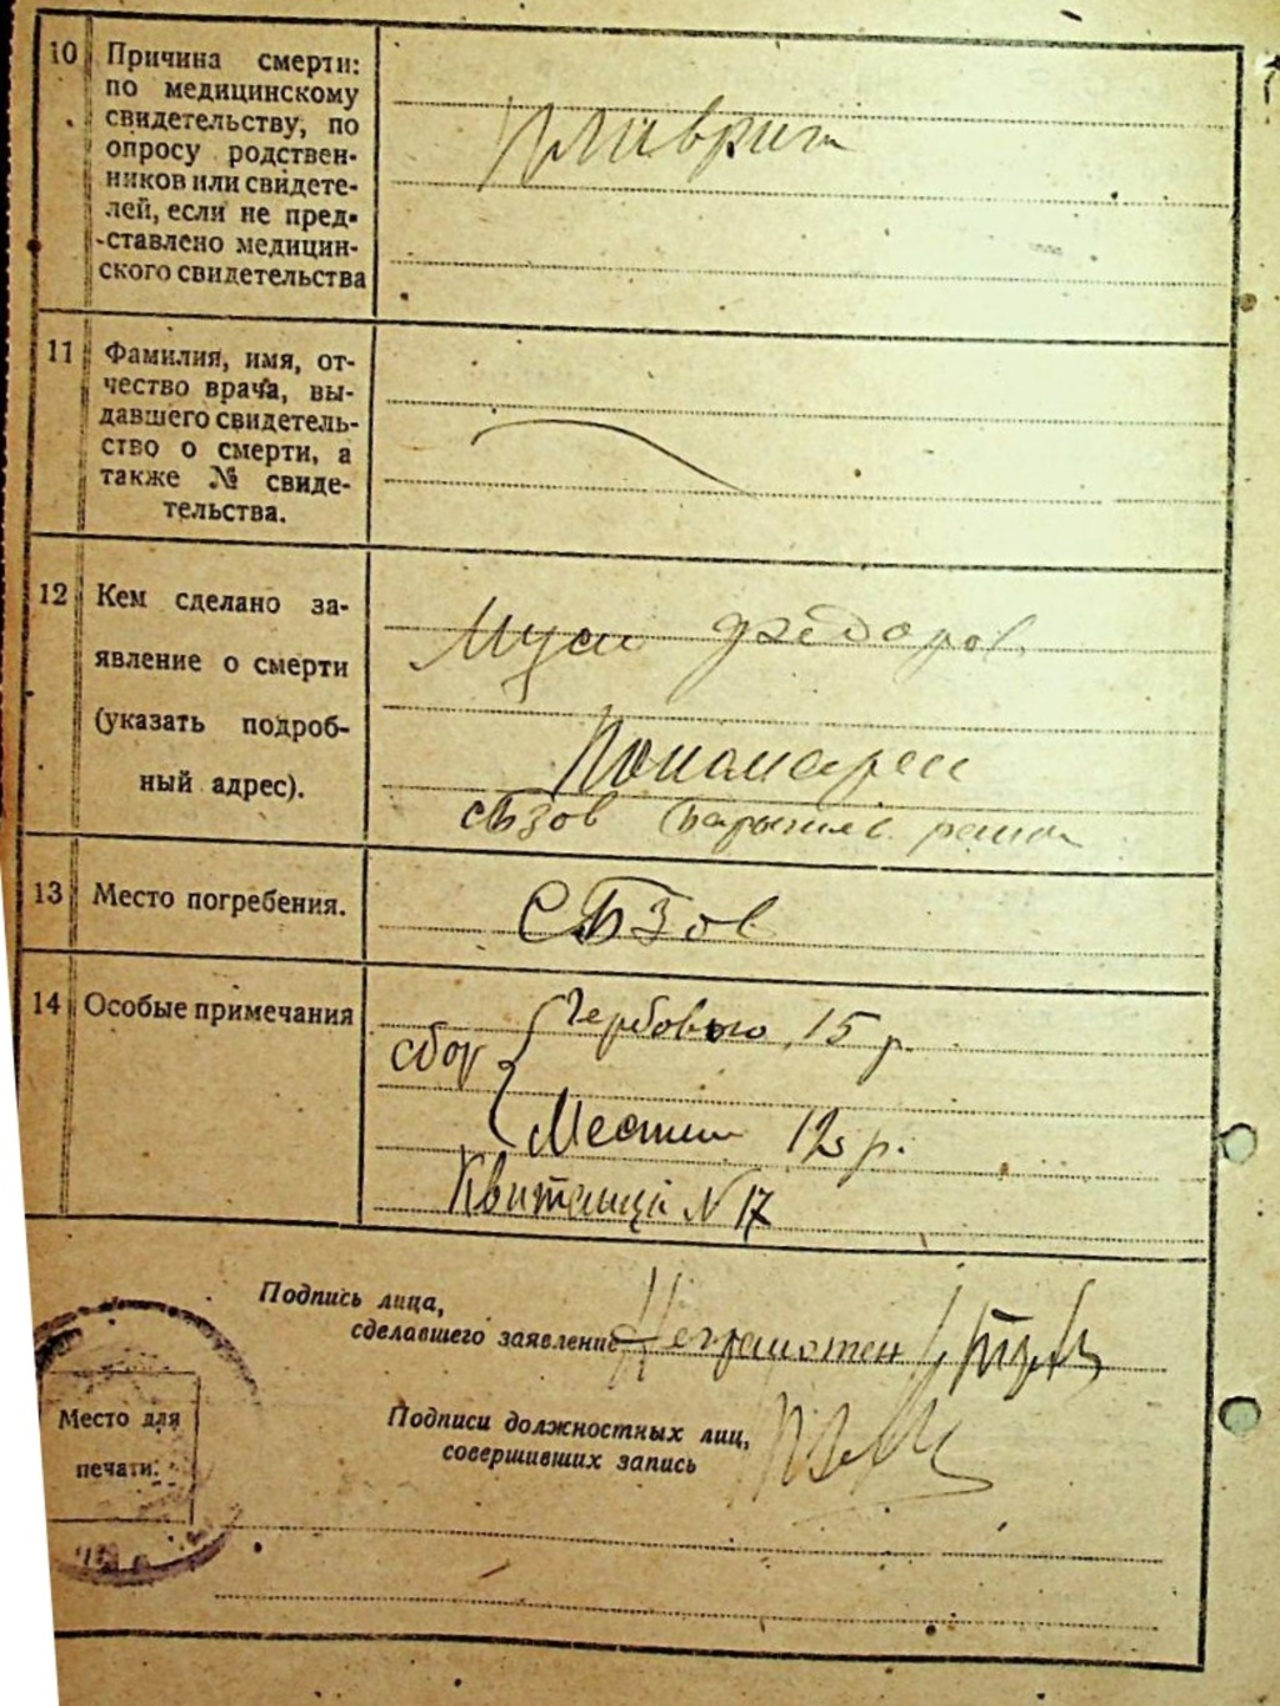 10 Причина смерти:
по медицинскому
свидетельству, по
опросу родствен-
ников или свидете-
лей, если не пред-
ставлено медицин-
ского свидетельства
Пливрит
11 Фамилия, имя, от-
чество врача, вы-
давшего свидетель-
ство о смерти, а
также № свиде-
тельства.
12 Кем сделано за-
явление о смерти
(указать подроб-
ный адрес).
Федоров.
Пономарев
с Бзов Барышев.
13 Место погребения.
С Бзов
14 Особые примечания
сбор
Гербового 15 р.
Местн 12 р.
Квитанция N 17
Подпись лица,
сделавшего заявление
Неграмотен
Подписи должностных лиц,
совершивших запись
Место для
печати.